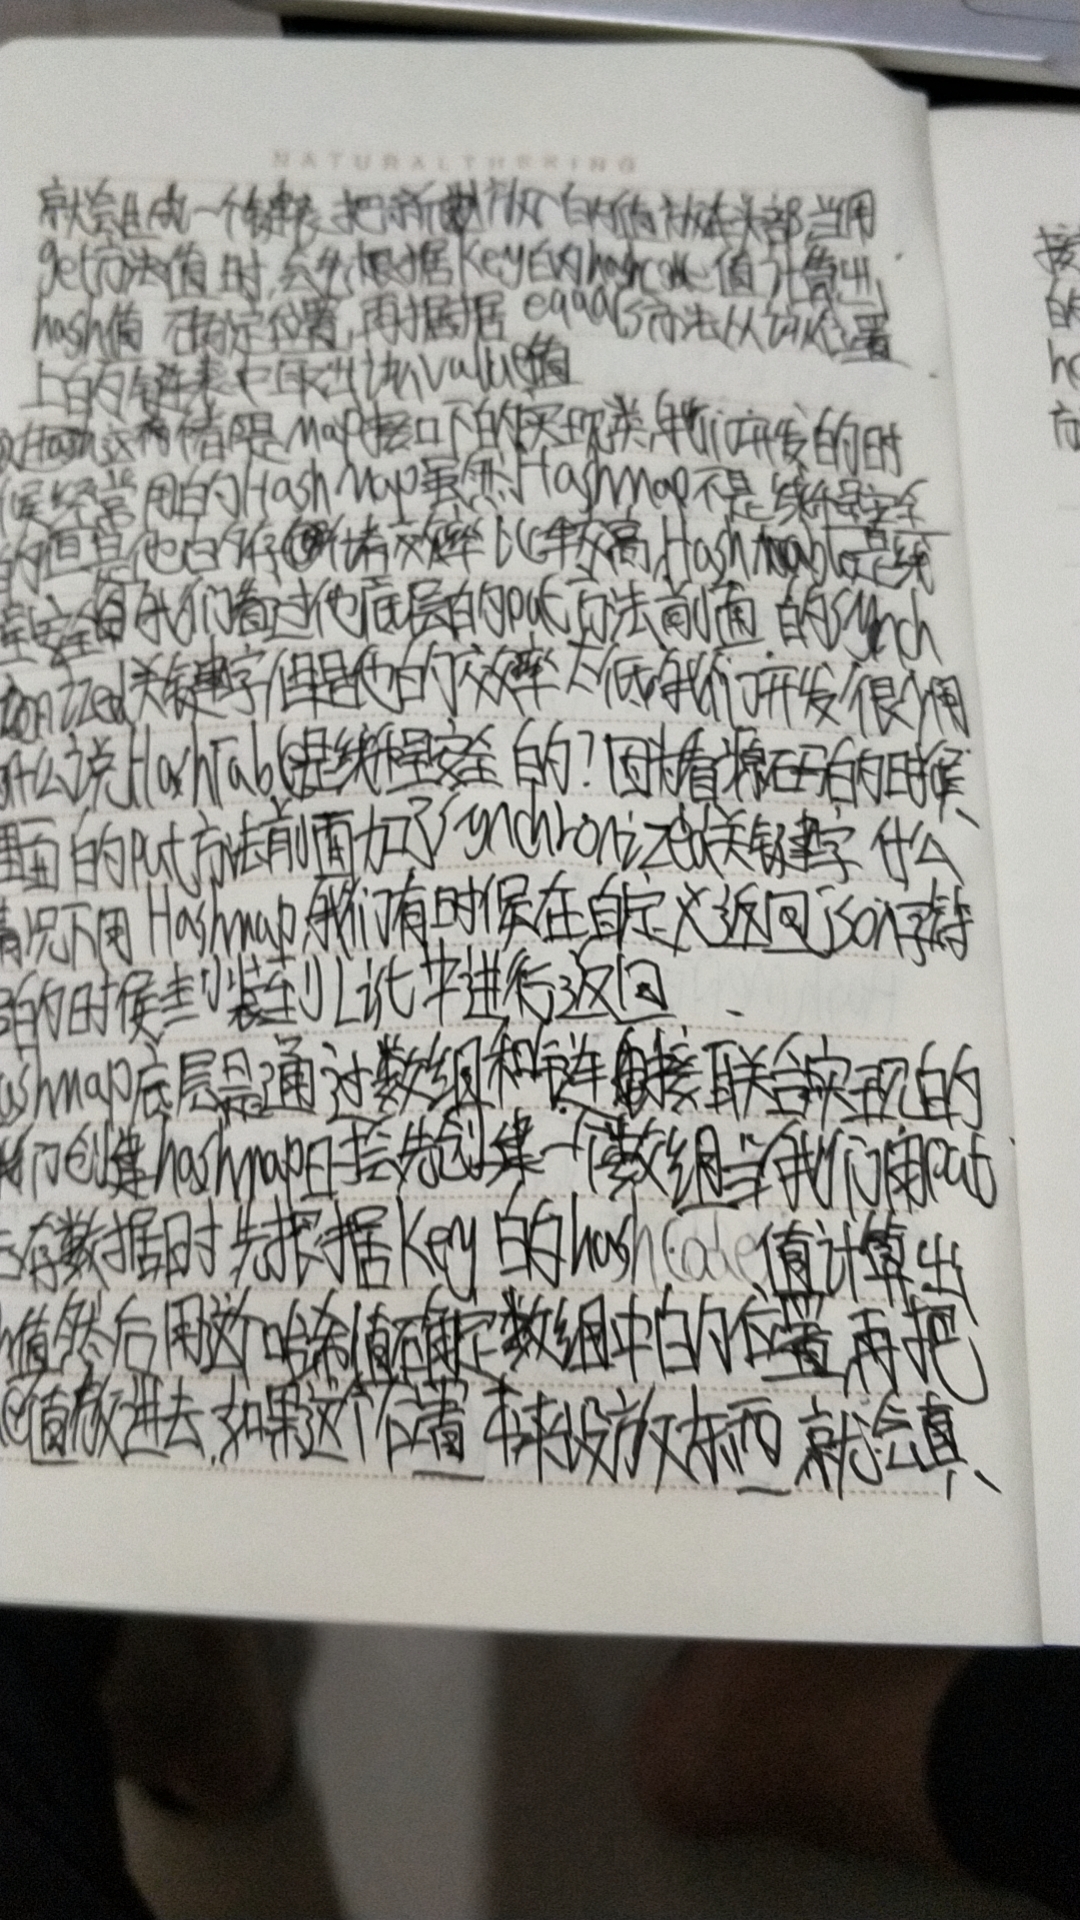 NATURALTHERING
就会生成一个链表,把新放的值放在头部,当用
get方法值时,会先根据Key的hashcode值计算出
hash值 确定位置,再根据equals方法从该位置
上的链表中取出该value值
Hash这两者都是Map接口下的实现类,我们开发的时
候经常用的HashMap虽然Hashmap不是线程安全
的但是他的存储效率比较高,Hash 是线
程安全 我们看过他底层的put方法前面 的Synch
ronized关键字但是他的效率太低我们开发很少用
什么说HashTable是线程安全的?因为看源码的时候,
里面的put方法前面加了Synchronized关键字 什么
情况下用Hashmap,我们有时候在自定义返回json字符
的时候封装到 中进行返回
ashmap底层是通过数组和链接联合实现的
我们创建hashmap时会先创建一个数组当我们用put
存数据时先根据Key的hashCode值计算出
h值然后用这个哈希值确定数组中的位置,再把
e值放进去,如果这个位置本来没放东西 就会直、
接
的
ha
方